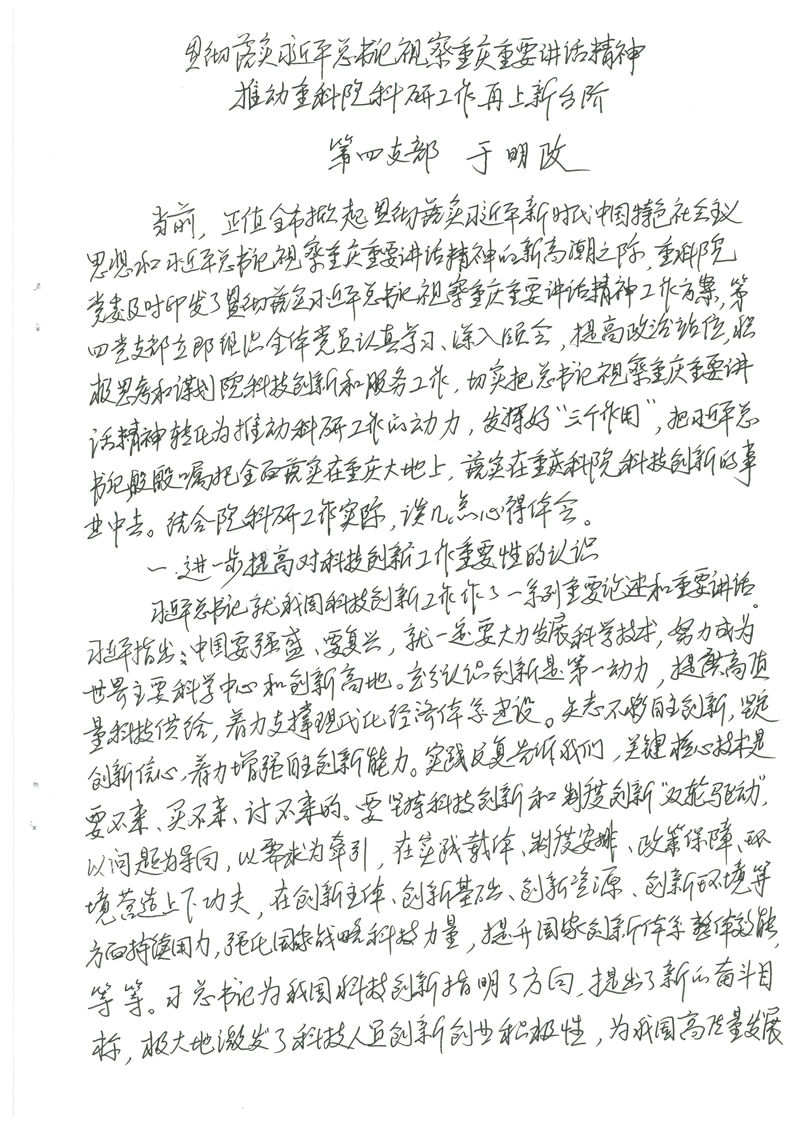 贯彻落实习近平总书记视察重庆重要讲话精神
推动重科院科研工作再上新台阶
第四支部 于明政
当前，正值全市掀起贯彻落实习近平新时代中国特色社会主义
思想和习近平总书记视察重庆重要讲话精神的新高潮之际，重科院
党委及时印发了贯彻落实习近平总书记视察重庆重要讲话精神工作方案，第
四党支部立即组织全体党员认真学习、深入领会，提高政治站位，积
极思考和谋划院科技创新和服务工作，切实把总书记视察重庆重要讲
话精神转化为推动科研工作的动力，发挥好“三个作用”，把习近平总
书记殷殷嘱托全面落实在重庆大地上，落实在重庆科院科技创新的事
业中去。结合院科研工作实际，谈几点心得体会。
一、进一步提高对科技创新工作重要性的认识
习近平总书记就我国科技创新工作作了一系列重要论述和重要讲话。
习近平指出：中国要强盛、要复兴，就一定要大力发展科学技术，努力成为
世界主要科学中心和创新高地。充分认识创新是第一动力，提供高质
量科技供给，着力支撑现代化经济体系建设。矢志不移自主创新，坚定
创新信心，着力增强自主创新能力。实践反复告诉我们，关键核心技术是
要不来、买不来、讨不来的。要坚持科技创新和制度创新“双轮驱动”，
以问题为导向，以需求为牵引，在实践载体、制度安排、政策保障、环
境营造上下功夫，在创新主体、创新基础、创新资源、创新环境等
方面持续用力，强化国家战略科技力量，提升国家创新体系整体效能，
等等。习总书记为我国科技创新指明了方向，提出了新的奋斗目
标，极大地激发了科技人员创新创业积极性，为我国高质量发展